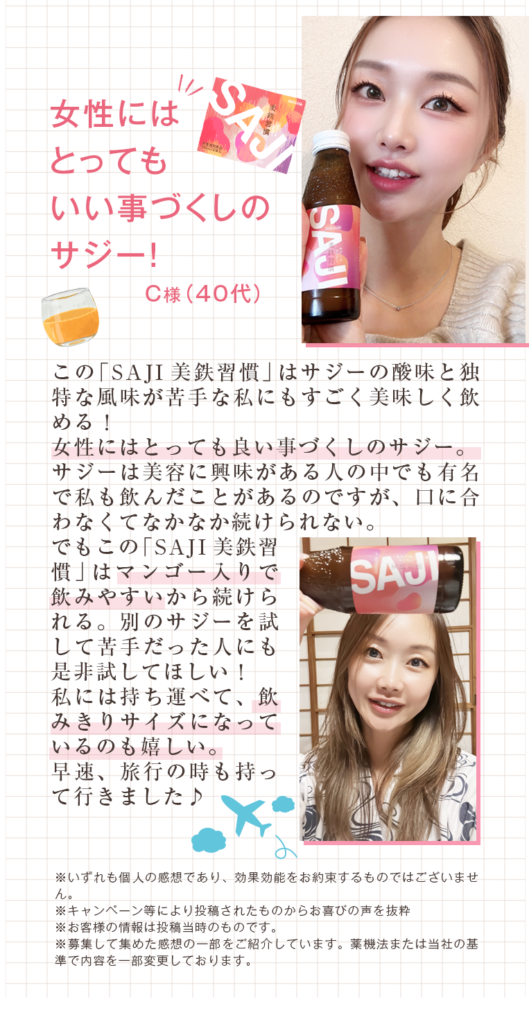 女性には
とっても
いい事づくしの
サジー!
C様（40代）
SAJI
美鉄習慣
SAJI
この「SAJI 美鉄習慣」はサジーの酸味と独
特な風味が苦手な私にもすごく美味しく飲
める！
女性にはとっても良い事づくしのサジー。
サジーは美容に興味がある人の中でも有名
で私も飲んだことがあるのですが、口に合
わなくてなかなか続けられない。
でもこの「SAJI 美鉄習
慣」はマンゴー入りで
飲みやすいから続けら
れる。別のサジーを試
して苦手だった人にも
是非試してほしい！
私には持ち運べて、飲
みきりサイズになって
いるのも嬉しい。
早速、旅行の時も持っ
て行きました♪
SAJI
※いずれも個人の感想であり、効果効能をお約束するものではございませ
ん。
※キャンペーン等により投稿されたものからお喜びの声を抜粋
※お客様の情報は投稿当時のものです。
※募集して集めた感想の一部をご紹介しています。薬機法または当社の基
準で内容を一部変更しております。